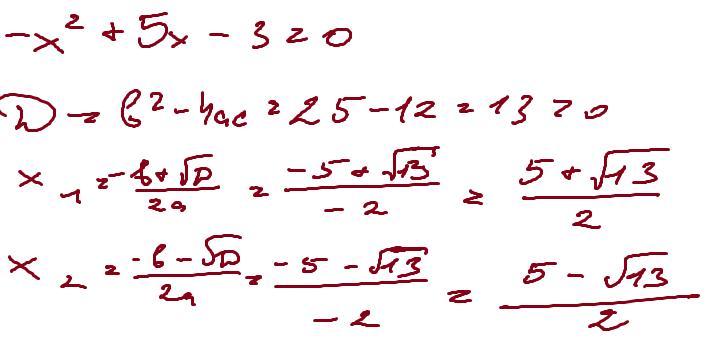 -x² + 5x - 3 = 0
D = b² - 4ac = 25 - 12 = 13 > 0
x₁ = (-b + √D)/(2a) = (-5 + √13)/(-2) = (5 + √13)/2
x₂ = (-b - √D)/(2a) = (-5 - √13)/(-2) = (5 - √13)/2